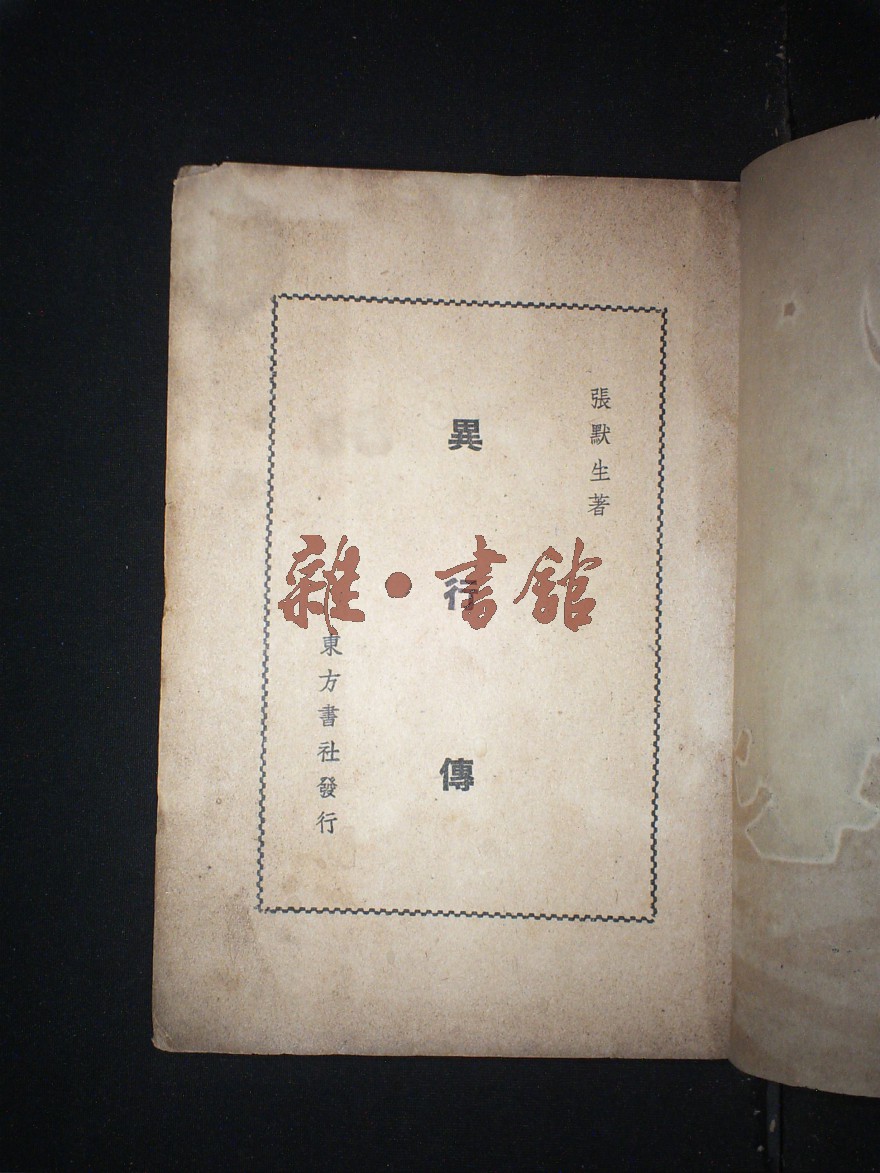 張默生著
異行傳
東方書社發行
雜·書館